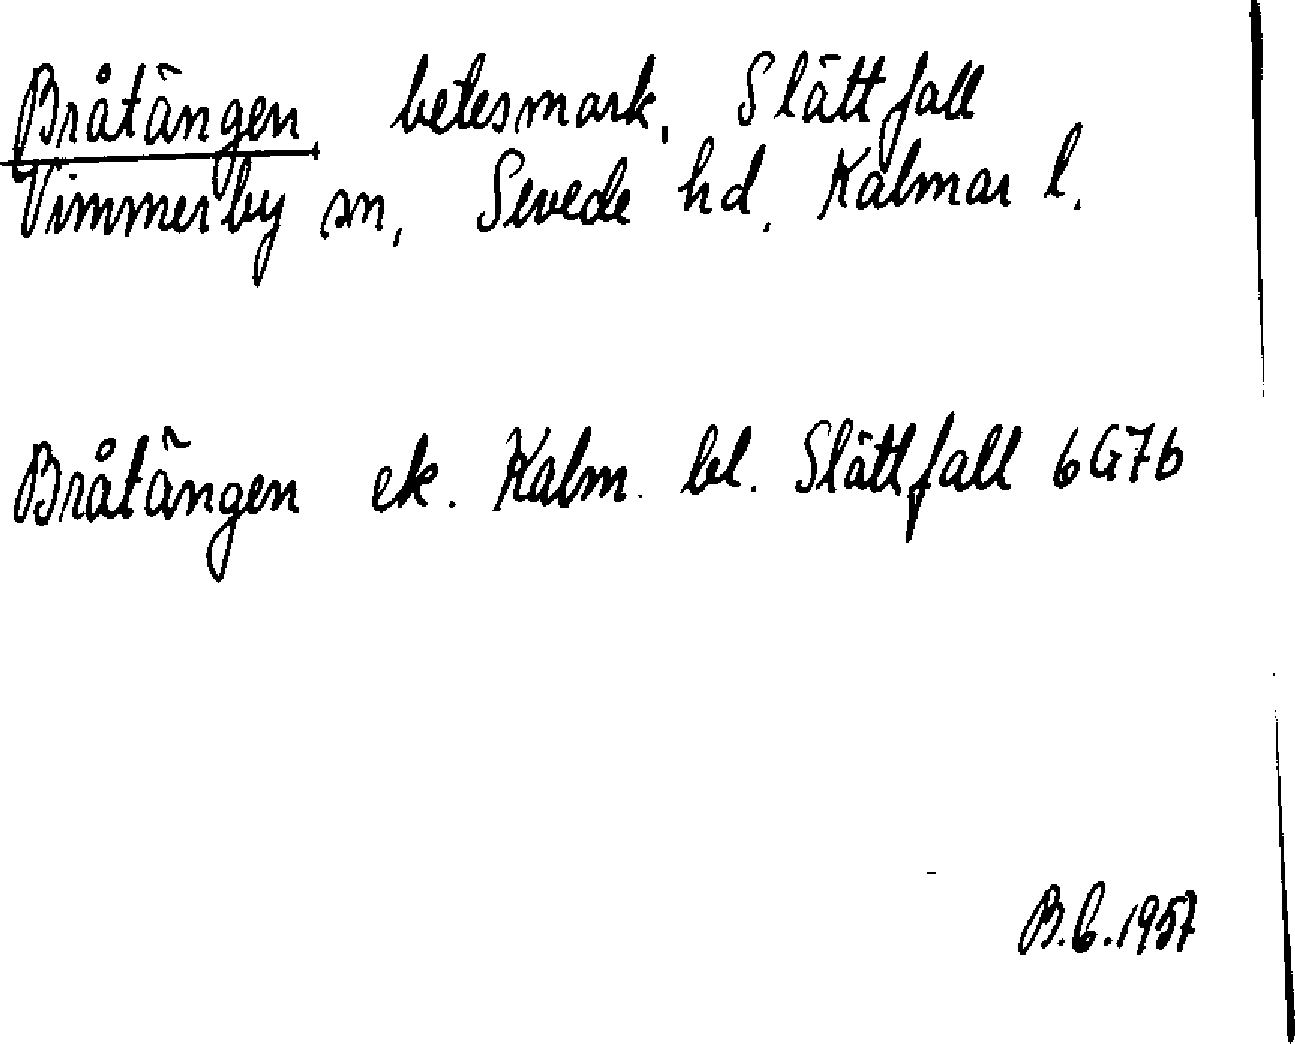 Bråtängen, betesmark, Slättfall
Vimmerby sn, Sevede hd, Kalmar l.
Bråtängen ek. Kalm. bl. Slättfall 6G7b
B.E.1957